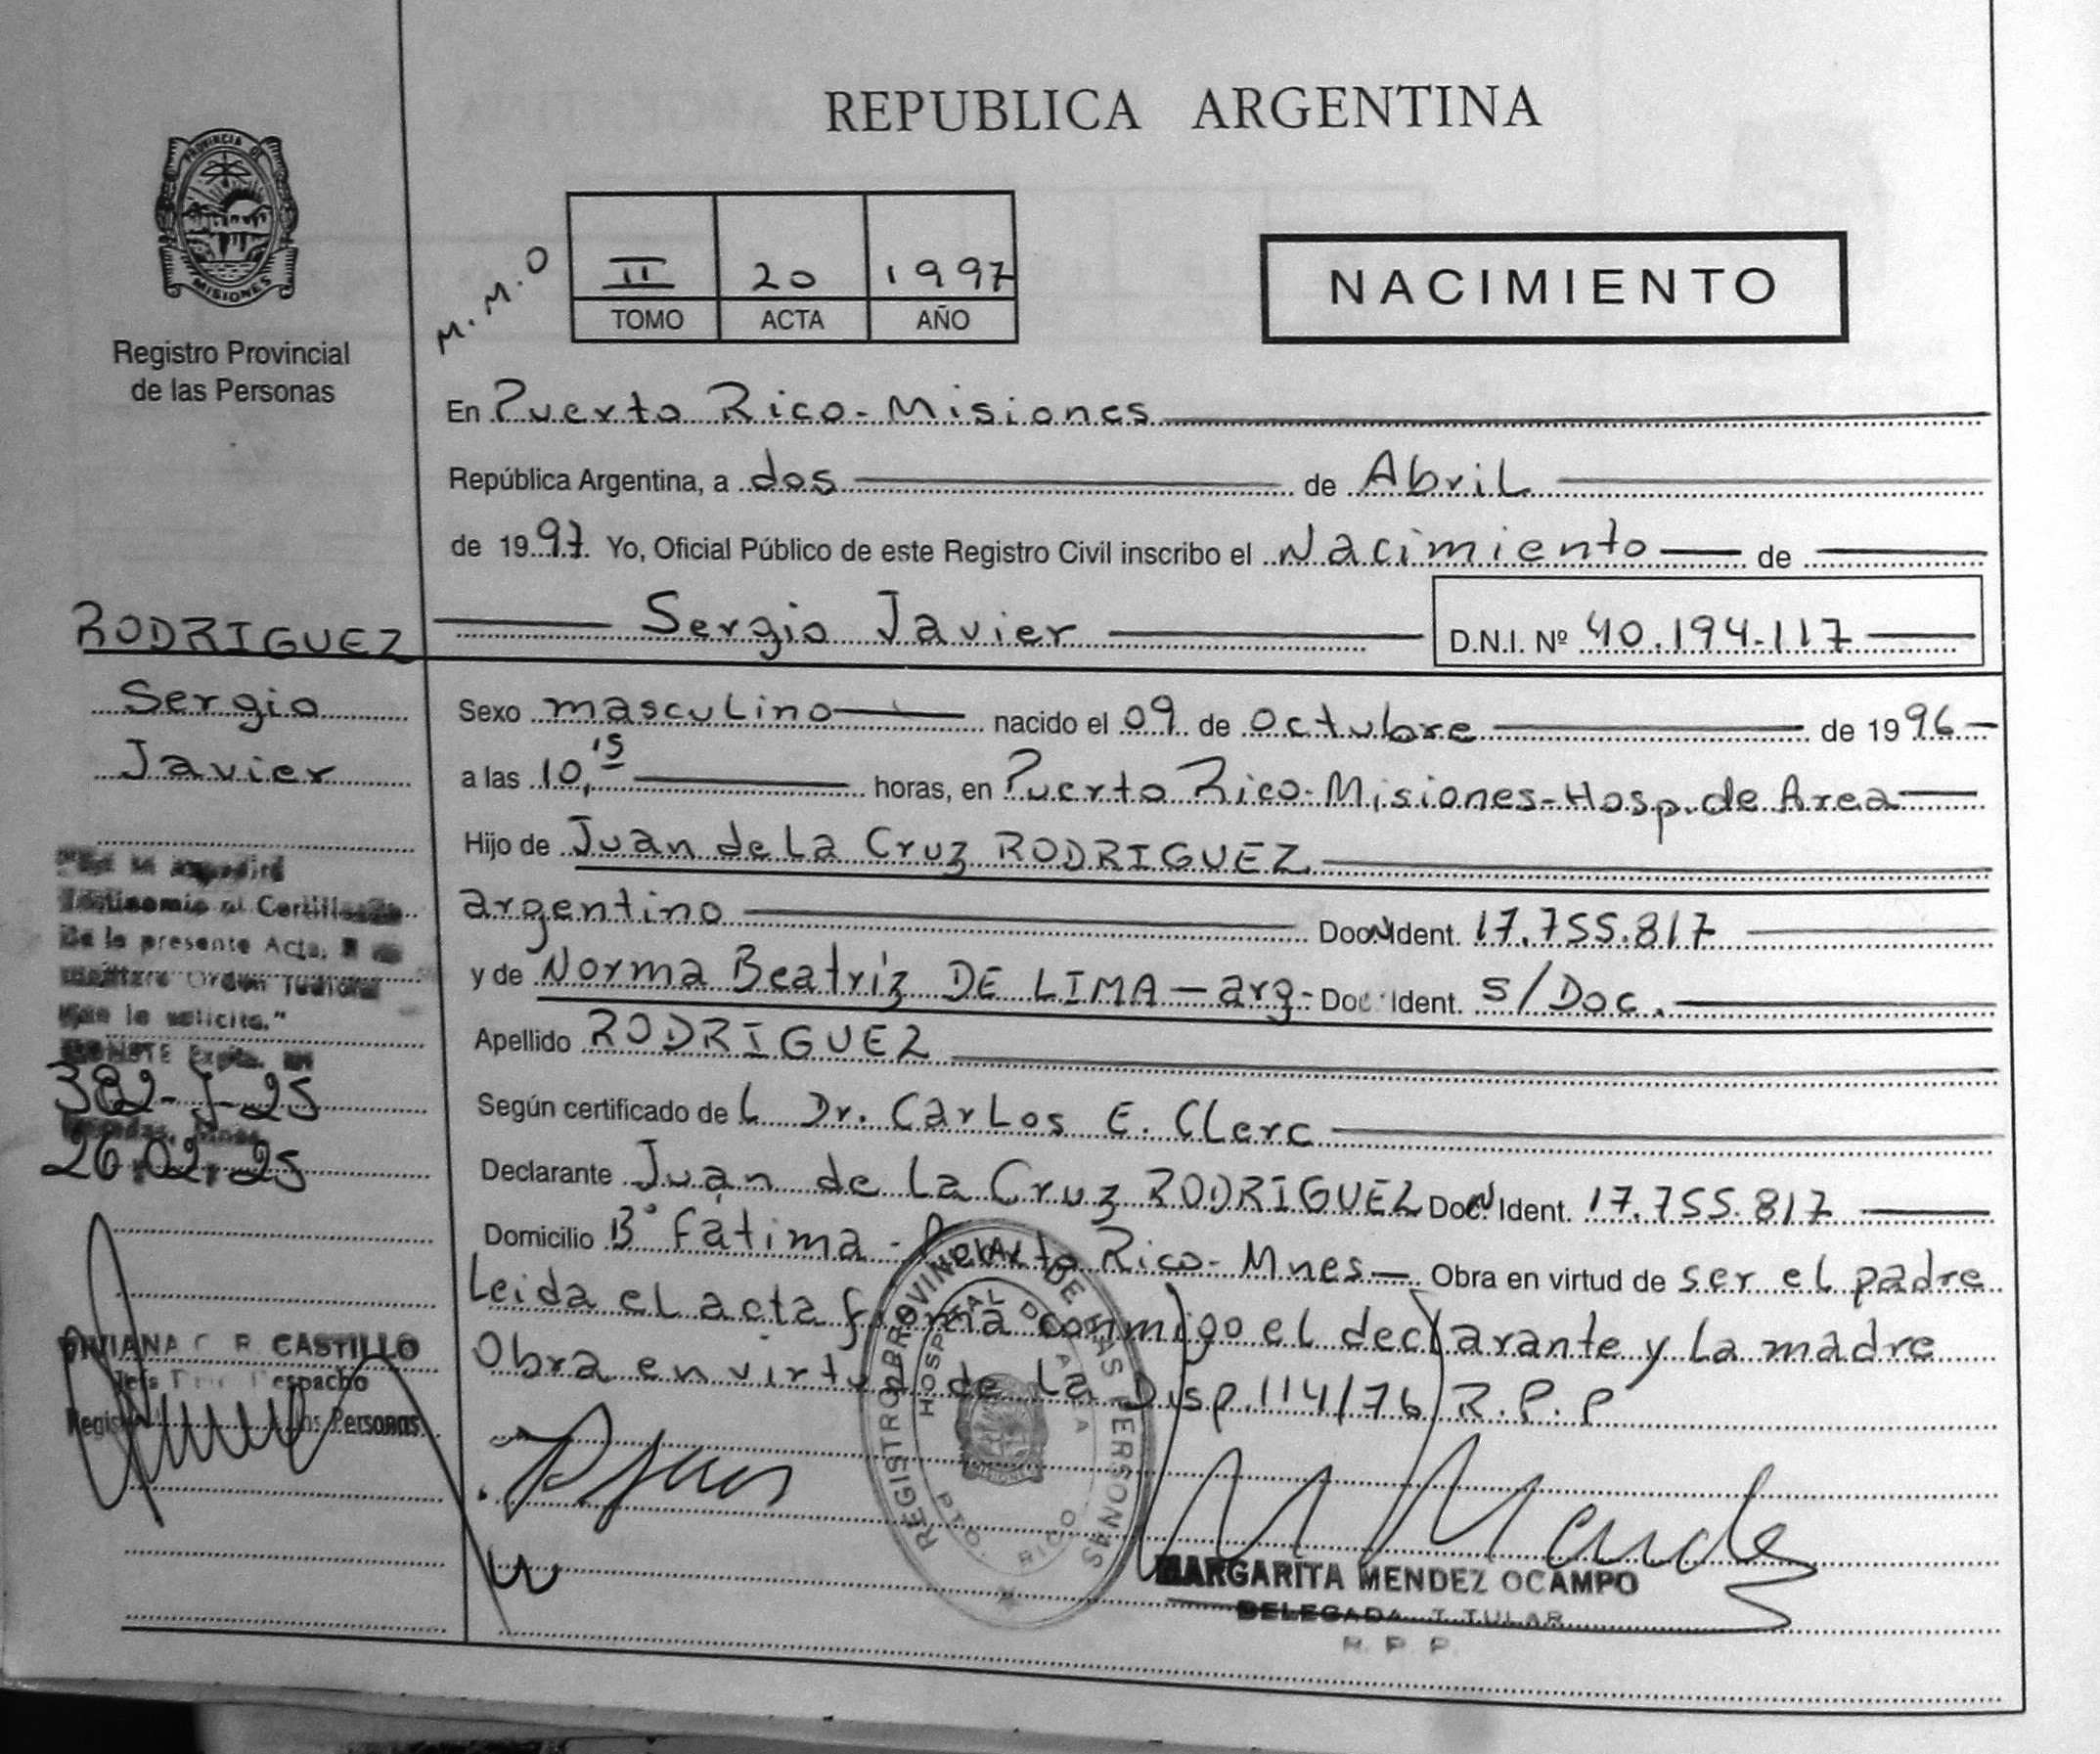 REPUBLICA ARGENTINA
PROVINCIA DE
MISIONES
Registro Provincial
de las Personas
M.M.O
II 20 1997
TOMO ACTA AÑO
NACIMIENTO
En Puerto Rico-Misiones
República Argentina, a dos de Abril
de 1997. Yo, Oficial Público de este Registro Civil inscribo el Nacimiento de
Sergio Javier D.N.I. Nº 40.194.117
RODRIGUEZ
Sergio
Javier
Sexo masculino nacido el 09 de octubre de 1996
a las 10,15 horas, en Puerto Rico-Misiones-Hosp.de Area
Hijo de Juan de La Cruz RODRIGUEZ
argentino Doc. Ident. 17.755.817
y de Norma Beatriz DE LIMA-arg- Doc. Ident. s/Doc.
Apellido RODRIGUEZ
Según certificado del Dr. Carlos E. Clerc
Declarante Juan de la Cruz RODRIGUEZ Doc. Ident. 17.755.817
Domicilio Bº Fátima-Puerto Rico-Mnes- Obra en virtud de ser el padre
Leida el acta firma conmigo el declarante y la madre
Obra en virtud de la Disp.114/76 R.P.P
De la presente Acta,
Orden Judicial
que lo solicite."
Expte.
382-J-25
26.02.25
VIVIANA C. R. CASTILLO
Despacho
las Personas
REGISTRO PROVINCIAL DE LAS PERSONAS
HOSPITAL DE AREA
PTO. RICO
MISIONES
MARGARITA MENDEZ OCAMPO
DELEGADA TITULAR
R. P. P.